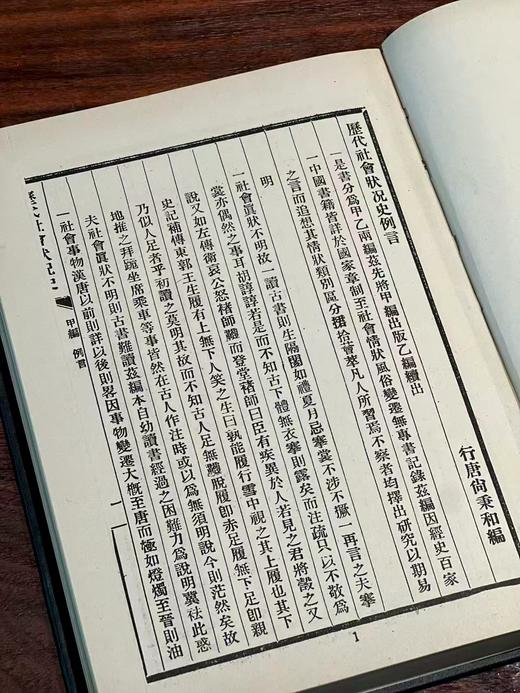 歷代社會狀況史例言
行唐尙秉和編
一是書分爲甲乙兩編茲先將甲編出版乙編續出
一中國書籍皆詳於國家章制至社會情狀風俗變遷無專書記錄茲編因經史百家
之言而追想其情狀類別區分搜拾薈萃凡人所習焉不察者均擇出研究以期易
明
一社會眞狀不明故一讀古書則生隔閡如禮夏月忌褰裳不涉不撅一再言之夫褰
裳亦偶然之事耳胡諄諄若是而不知古下體無衣搴則露矣而注疏只以不敬爲
說又如左傳衛哀公怒褚師韤而登堂褚師曰臣有疾異於人若見之君將嗀之又
史記補傳東郭王生履有上無下人笑之生曰孰能履行雪中視之其上履也其下
乃似人足者乎初讀之莫明其故而不知古人足無韤脫履卽赤足履無下足卽親
地推之拜跪坐席乘車等事皆然在古人作注時或以爲無須明說今則茫然矣故
夫社會眞狀不明則古書難讀茲編本自幼讀書經過之困難力爲說明冀祛此惑
一社會事物漢唐以前則詳以後則畧因事物變遷大概至唐而極如燈燭至晉則油
歷代社會狀況史
甲編 例言
一
1